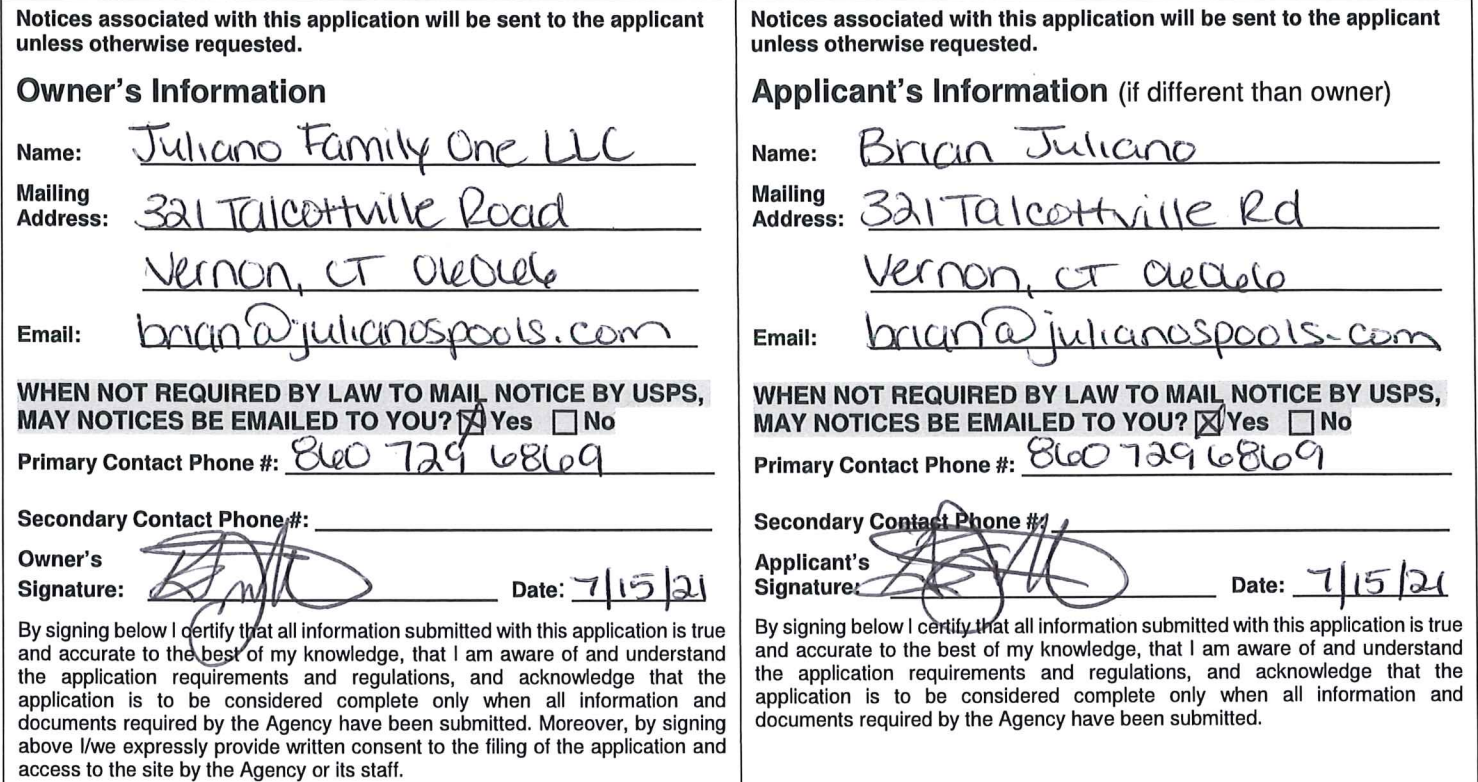 Notices associated with this application will be sent to the applicant
unless otherwise requested.
Owner's Information
Name: Juliano Family One LLC
Mailing
Address: 321 Talcottville Road
Vernon, CT 06066
Email: brian@julianospools.com
WHEN NOT REQUIRED BY LAW TO MAIL NOTICE BY USPS,
MAY NOTICES BE EMAILED TO YOU? ☒ Yes ☐ No
Primary Contact Phone #: 860 729 6869
Secondary Contact Phone #:
Owner's
Signature: Date: 7/15/21
By signing below I certify that all information submitted with this application is true
and accurate to the best of my knowledge, that I am aware of and understand
the application requirements and regulations, and acknowledge that the
application is to be considered complete only when all information and
documents required by the Agency have been submitted. Moreover, by signing
above I/we expressly provide written consent to the filing of the application and
access to the site by the Agency or its staff.
Notices associated with this application will be sent to the applicant
unless otherwise requested.
Applicant's Information (if different than owner)
Name: Brian Juliano
Mailing
Address: 321 Talcottville Rd
Vernon, CT 06066
Email: brian@julianospools.com
WHEN NOT REQUIRED BY LAW TO MAIL NOTICE BY USPS,
MAY NOTICES BE EMAILED TO YOU? ☒ Yes ☐ No
Primary Contact Phone #: 860 729 6869
Secondary Contact Phone #:
Applicant's
Signature: Date: 7/15/21
By signing below I certify that all information submitted with this application is true
and accurate to the best of my knowledge, that I am aware of and understand
the application requirements and regulations, and acknowledge that the
application is to be considered complete only when all information and
documents required by the Agency have been submitted.